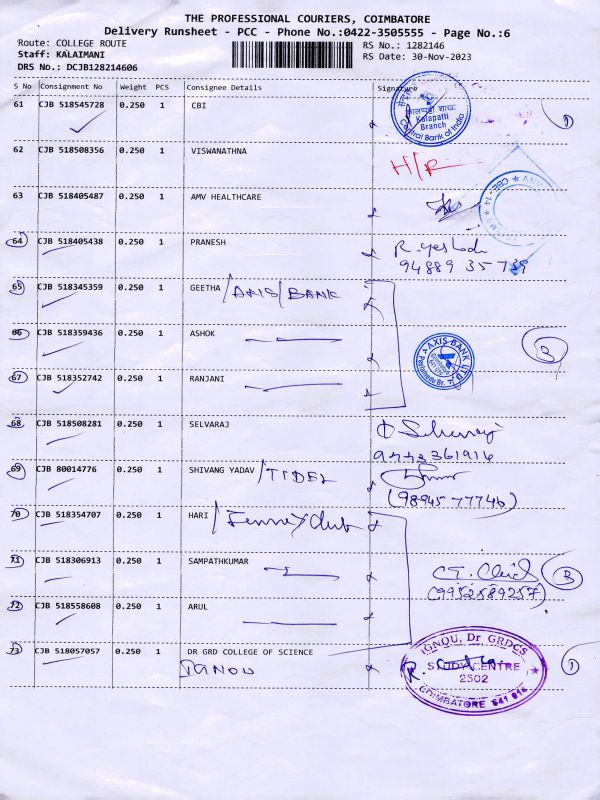 THE PROFESSIONAL COURIERS, COIMBATORE
Delivery Runsheet - PCC - Phone No.:0422-3505555 - Page No.:6
Route: COLLEGE ROUTE
Staff: KALAIMANI
DRS No.: DCJB128214606
RS No.: 1282146
RS Date: 30-Nov-2023
S No Consignment No Weight PCS Consignee Details Signature
61 CJB 518545728 0.250 1 CBI
कालपट्टी शाखा
Kalapatti
Branch
Central Bank of India
1
62 CJB 518508356 0.250 1 VISWANATHNA
H/R
63 CJB 518405487 0.250 1 AMV HEALTHCARE
64 CJB 518405438 0.250 1 PRANESH
94889 35739
65 CJB 518345359 0.250 1 GEETHA / AXIS / BANK
66 CJB 518359436 0.250 1 ASHOK
AXIS BANK LTD
3
67 CJB 518352742 0.250 1 RANJANI
68 CJB 518508281 0.250 1 SELVARAJ
9773361916
69 CJB 80014776 0.250 1 SHIVANG YADAV / TIDEL
(98945 77746)
70 CJB 518354707 0.250 1 HARI
71 CJB 518306913 0.250 1 SAMPATHKUMAR
(9952589257)
3
72 CJB 518558608 0.250 1 ARUL
73 CJB 518057057 0.250 1 DR GRD COLLEGE OF SCIENCE
IGNOU
IGNOU, Dr GRDCS
STUDY CENTRE
2502
COIMBATORE 641 014
1